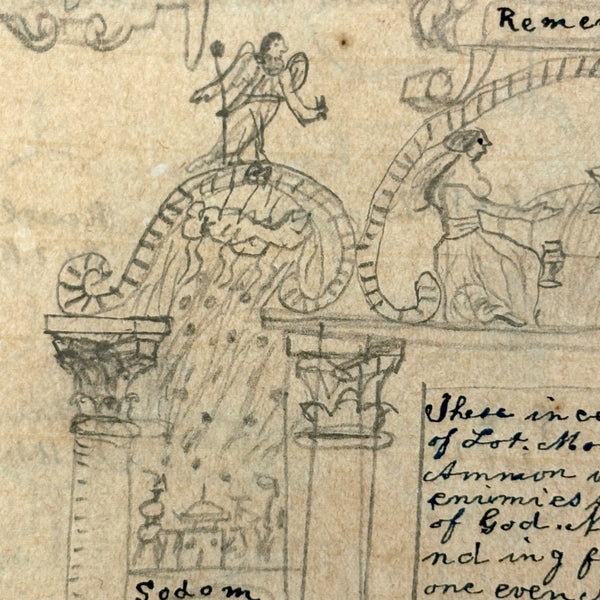 Reme
Sodom
These in ce
of Lot. Mo
Ammon w
enimies
of God. N
nd ing f
one even